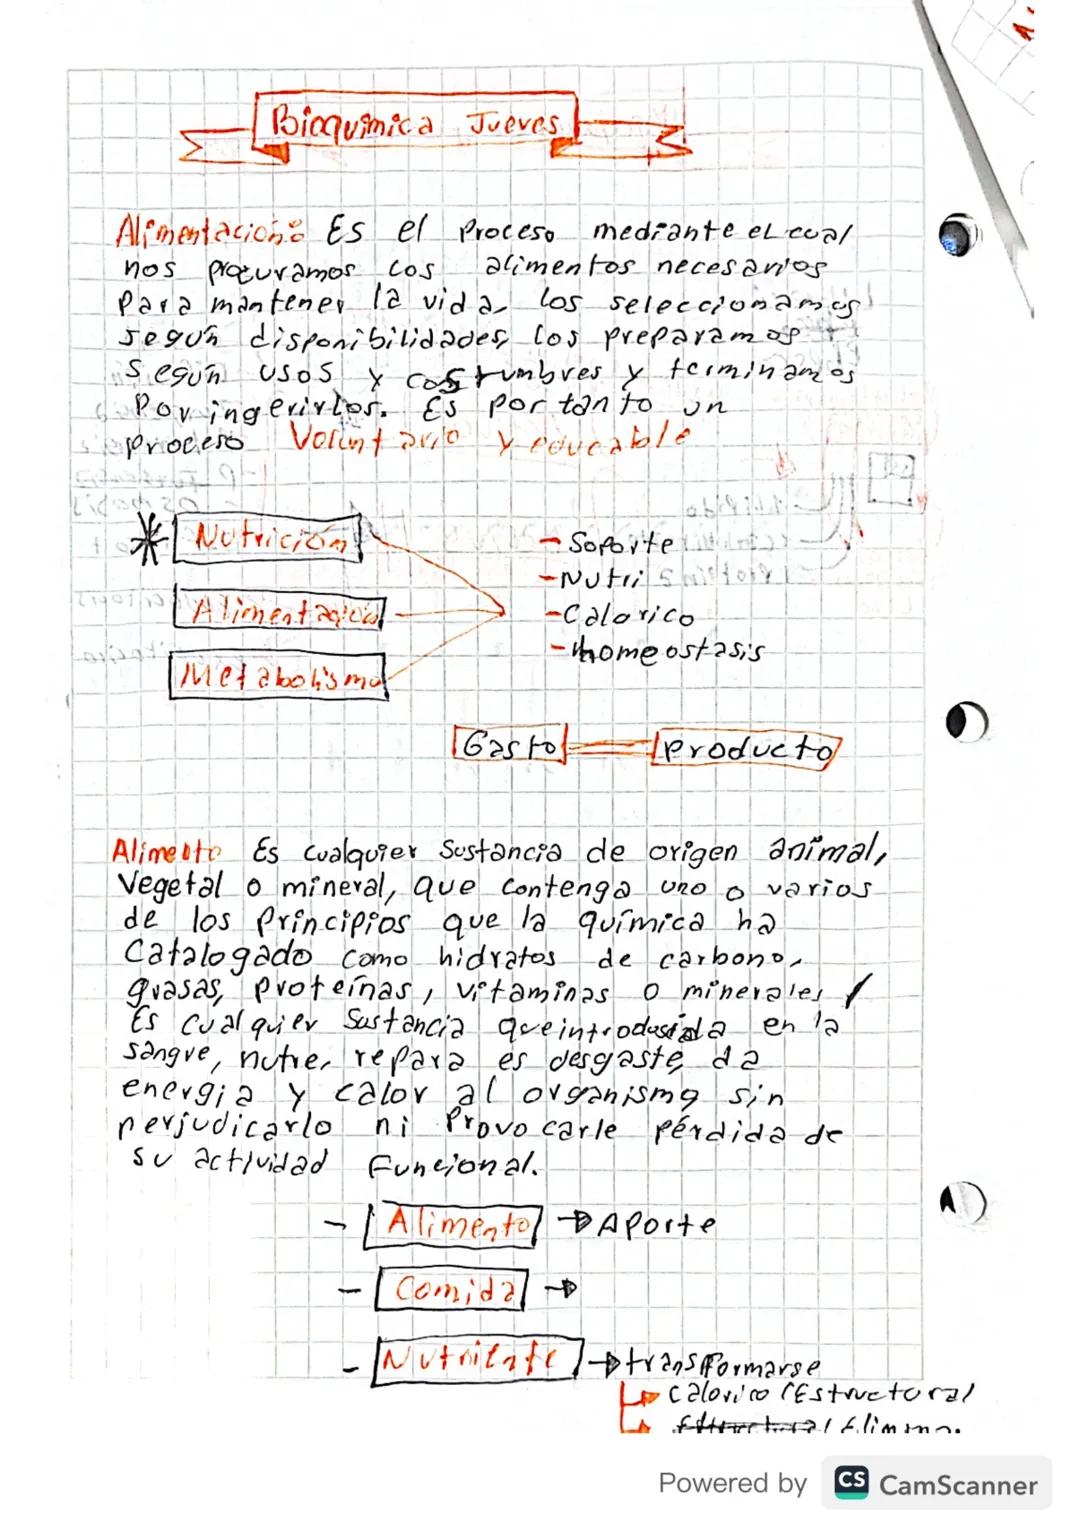 Bioquimica Jueves
Alimentación: Es el Proceso mediante el cual
nos procuramos los alimentos necesarios
Para mantener la vida, los seleccionamos
según disponibilidades, los preparamos
según usos y costumbres y terminamos
Por ingerirlos. Es por tanto un
proceso Voluntario y educable
Nutrición
Alimentación
Metabolismo
- Soporte
- Nutri
- Calorico
- homeostasis
Gasto
Producto
Alimento Es cualquier Sustancia de origen animal,
Vegetal o mineral, que contenga uno o varios
de los Principios que la química ha
Catalogado como hidratos de carbono,
grasas, Proteínas, vitaminas o minerales /
Es cualquier Sustancia que introducida en la
sangre, nutre, repara es desgaste, da
energia y calor al organismo sin
perjudicarlo ni Provocarle pérdida de
su actividad Funcional.
- Alimento → Aporte
- Comida →
- Nutriente → transformarse
Calorico (Estructural
Powered by CS CamScanner